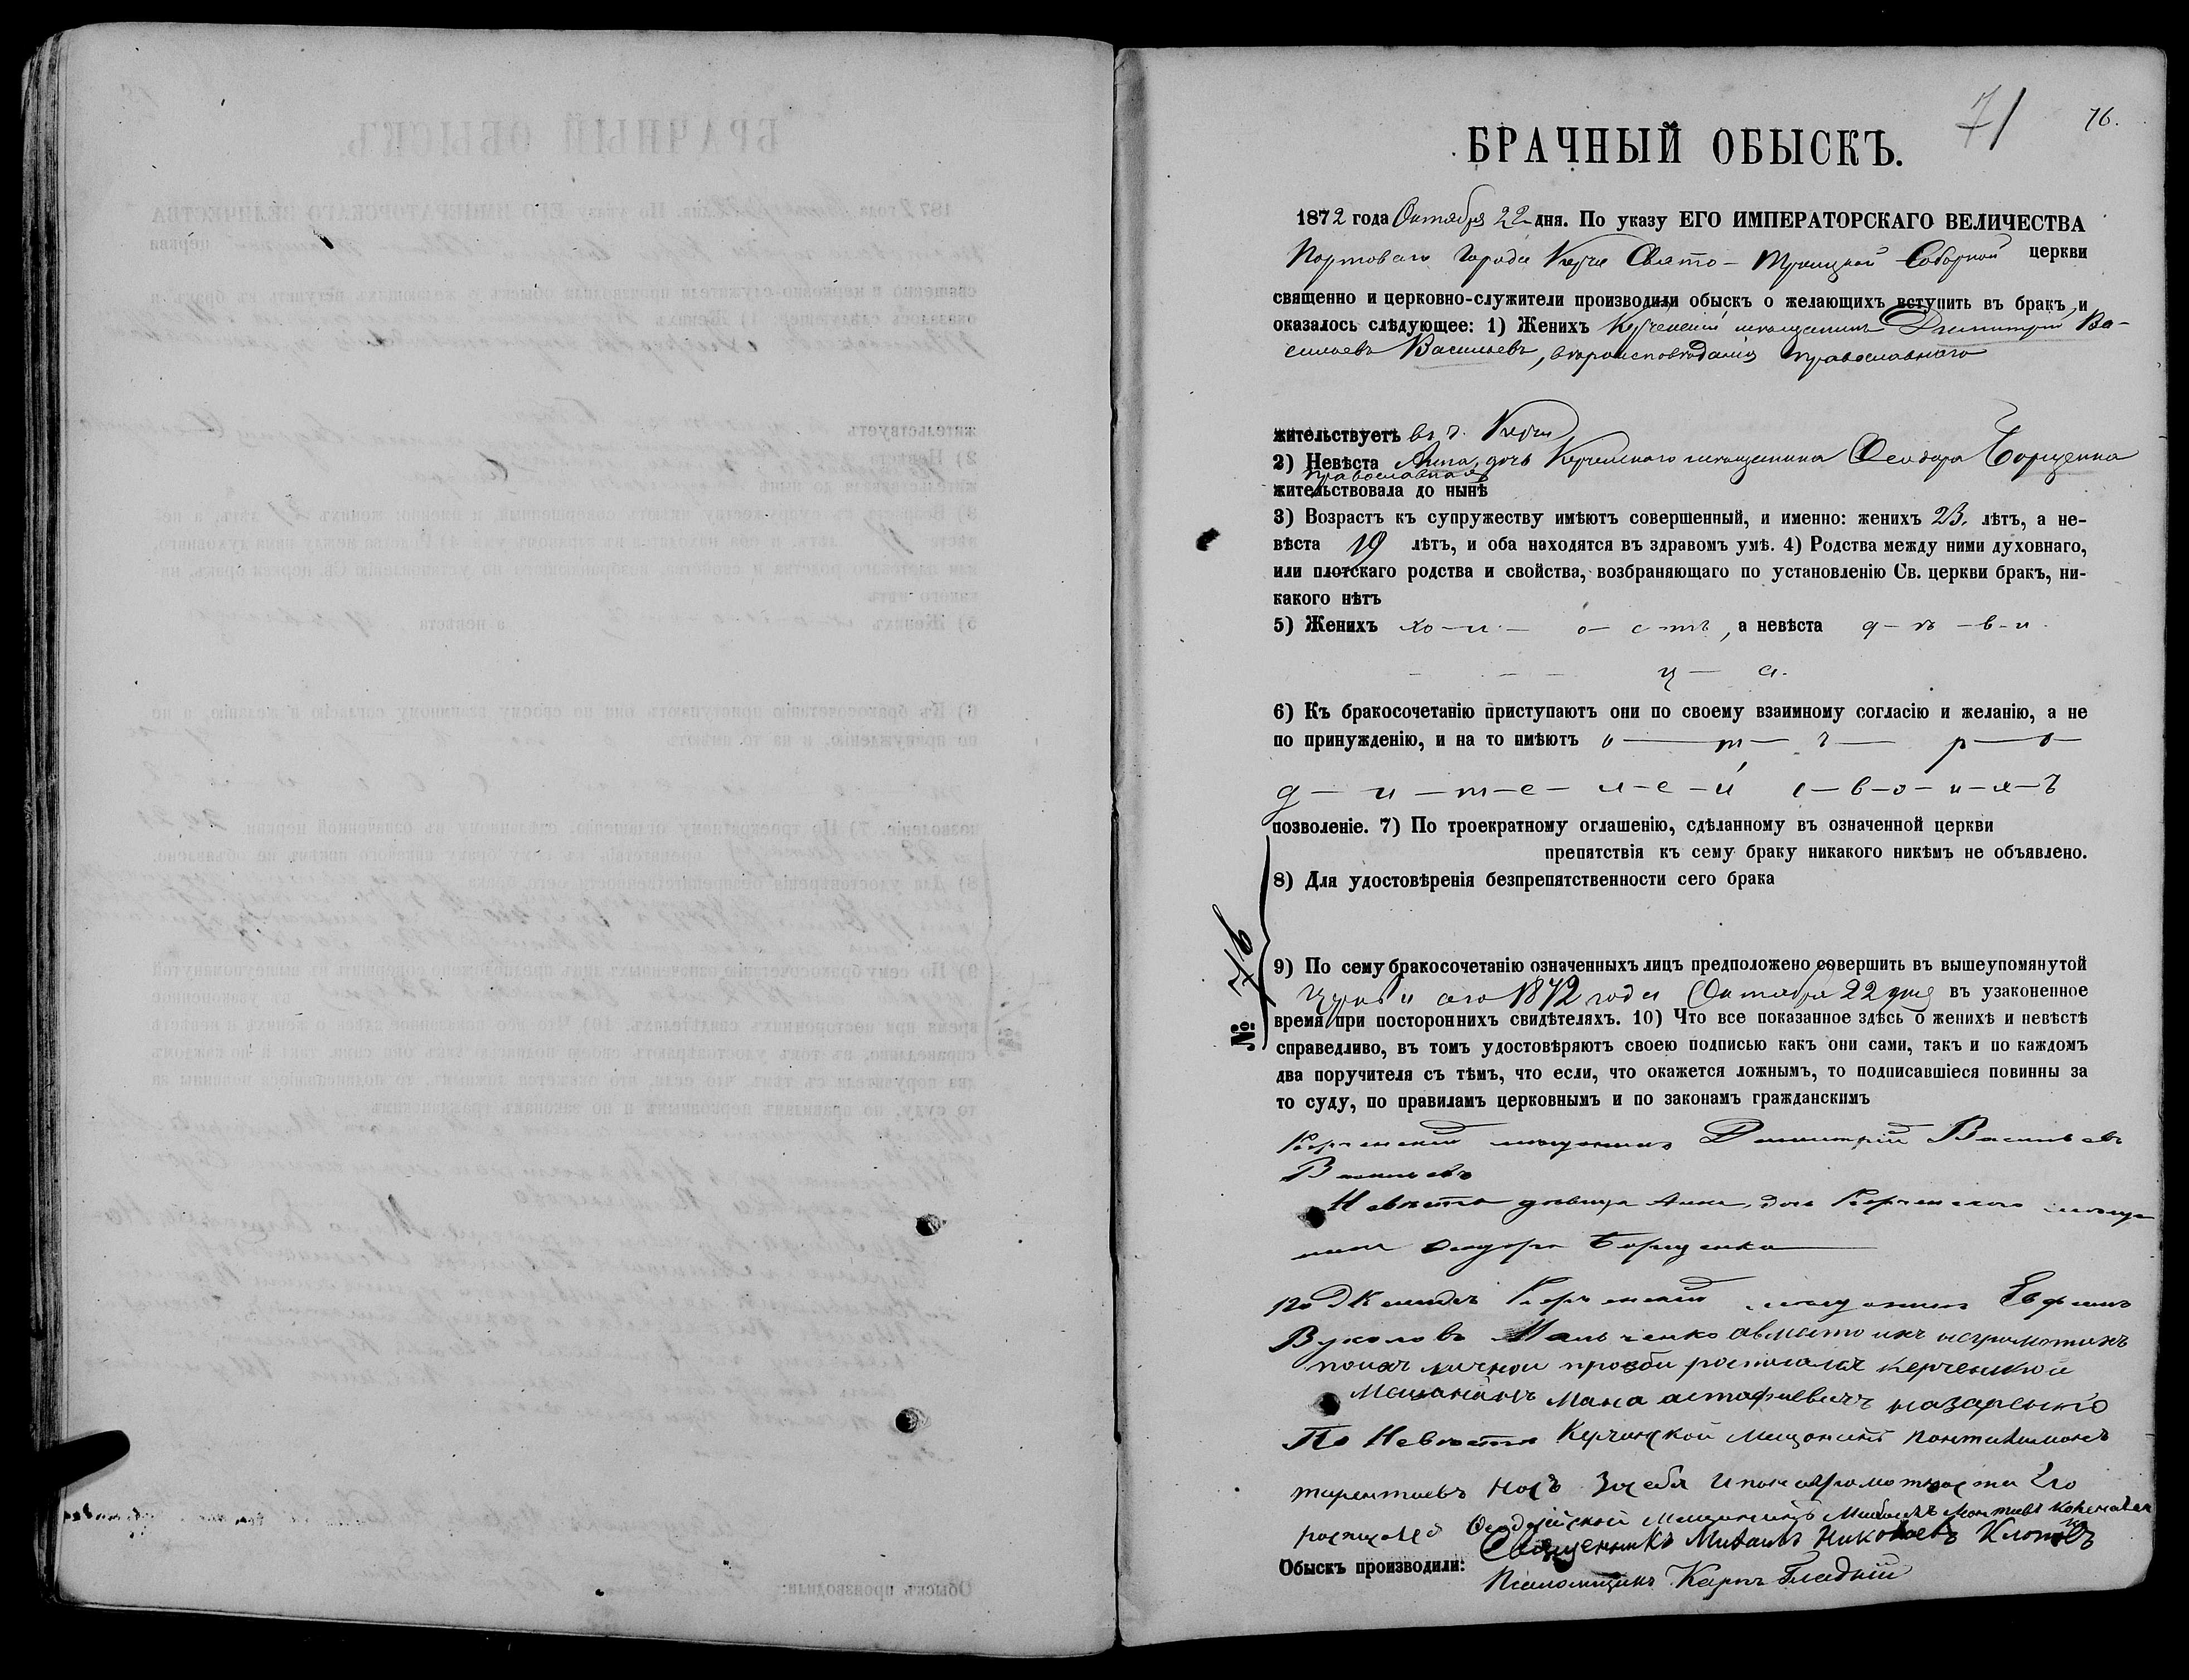 71
76.
БРАЧНЫЙ ОБЫСКЪ.
1872 года Октября 22 дня. По указу ЕГО ИМПЕРАТОРСКАГО ВЕЛИЧЕСТВА
Портоваго города Керчи Свято-Троицкой Соборной церкви
священно и церковно-служители производили обыскъ о желающихъ вступить въ бракъ и
оказалось слѣдующее: 1) Женихъ Керченскій мѣщанинъ Димитрій Ва-
сильевъ Васильевъ, вѣроисповѣданія православнаго
жительствуетъ въ г. Керчи
2) Невѣста Анна, дочь Керченскаго мѣщанина Ѳеодора Борщенка
православная
жительствовала до нынѣ
3) Возрастъ къ супружеству имѣютъ совершенный, и именно: женихъ 23. лѣтъ, а не-
вѣста 19 лѣтъ, и оба находятся въ здравомъ умѣ. 4) Родства между ними духовнаго,
или плотскаго родства и свойства, возбраняющаго по установленію Св. церкви бракъ, ни-
какого нѣтъ
5) Женихъ хо-л-о-стъ, а невѣста д-ѣ-в-и-
ц-а.
6) Къ бракосочетанію приступаютъ они по своему взаимному согласію и желанію, а не
по принужденію, и на то имѣютъ о-т-ъ р-о-
д-и-т-е-л-е-й с-в-о-и-х-ъ
позволеніе. 7) По троекратному оглашенію, сдѣланному въ означенной церкви
препятствія къ сему браку никакого никѣмъ не объявлено.
8) Для удостовѣренія безпрепятственности сего брака
№ 76
9) По сему бракосочетанію означенныхъ лицъ предположено совершить въ вышеупомянутой
церкви сего 1872 года Октября 22 дня въ узаконенное
время при постороннихъ свидѣтеляхъ. 10) Что все показанное здѣсь о женихѣ и невѣстѣ
справедливо, въ томъ удостовѣряютъ своею подписью какъ они сами, такъ и по каждомъ
два поручителя съ тѣмъ, что если, что окажется ложнымъ, то подписавшіеся повинны за
то суду, по правиламъ церковнымъ и по законамъ гражданскимъ
Керченскій мѣщанинъ Димитрій Васильевъ
Васильевъ
Невѣста дѣвица Анна, дочь Керченскаго мѣща
нина Ѳеодора Борщенка
по Женихѣ Керченский мещанинъ Ефимъ
Вуколовъ Мальченко
личной прозби керченской
Мещанинъ назаренко
По Невѣстѣ Керчинской Мещанинъ
терентиевъ Носъ За себя Его
Мещанинъ
Священникъ Михаилъ Николаевъ
Обыскъ производили:
Псаломщикъ Карпъ Гладкій